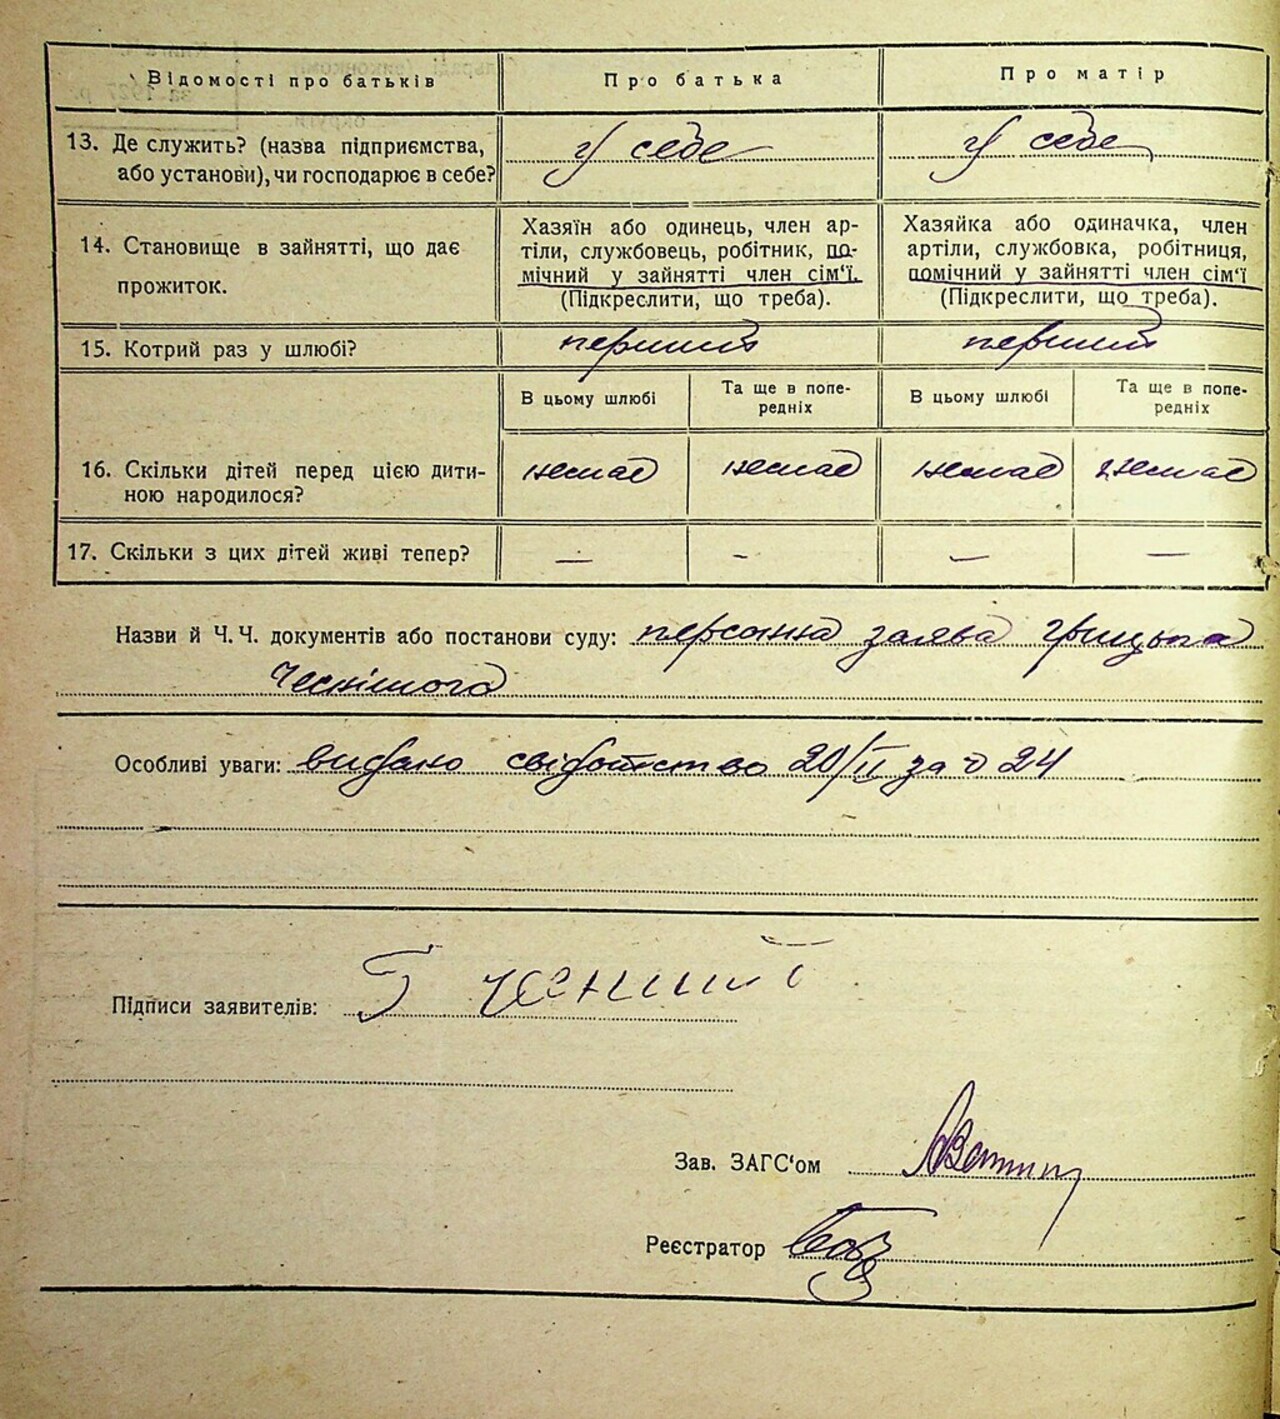 Відомості про батьків
Про батька
Про матір
13. Де служить? (назва підприємства,
або установи), чи господарює в себе?
у себе
у себе
14. Становище в зайнятті, що дає
прожиток.
Хазяїн або одинець, член ар-
тіли, службовець, робітник, по-
мічний у зайнятті член сім‘ї.
(Підкреслити, що треба).
Хазяйка або одиначка, член
артіли, службовка, робітниця,
помічний у зайнятті член сім‘ї
(Підкреслити, що треба).
15. Котрий раз у шлюбі?
перший
перший
В цьому шлюбі
Та ще в попе-
редніх
В цьому шлюбі
Та ще в попе-
редніх
16. Скільки дітей перед цією дити-
ною народилося?
немає
немає
немає
немає
17. Скільки з цих дітей живі тепер?
—
-
—
—
Назви й Ч. Ч. документів або постанови суду: персонна заява Грицька
Особливі уваги: видано свідотство 20/II за № 24
Підписи заявителів:
Зав. ЗАГС‘ом
Реєстратор